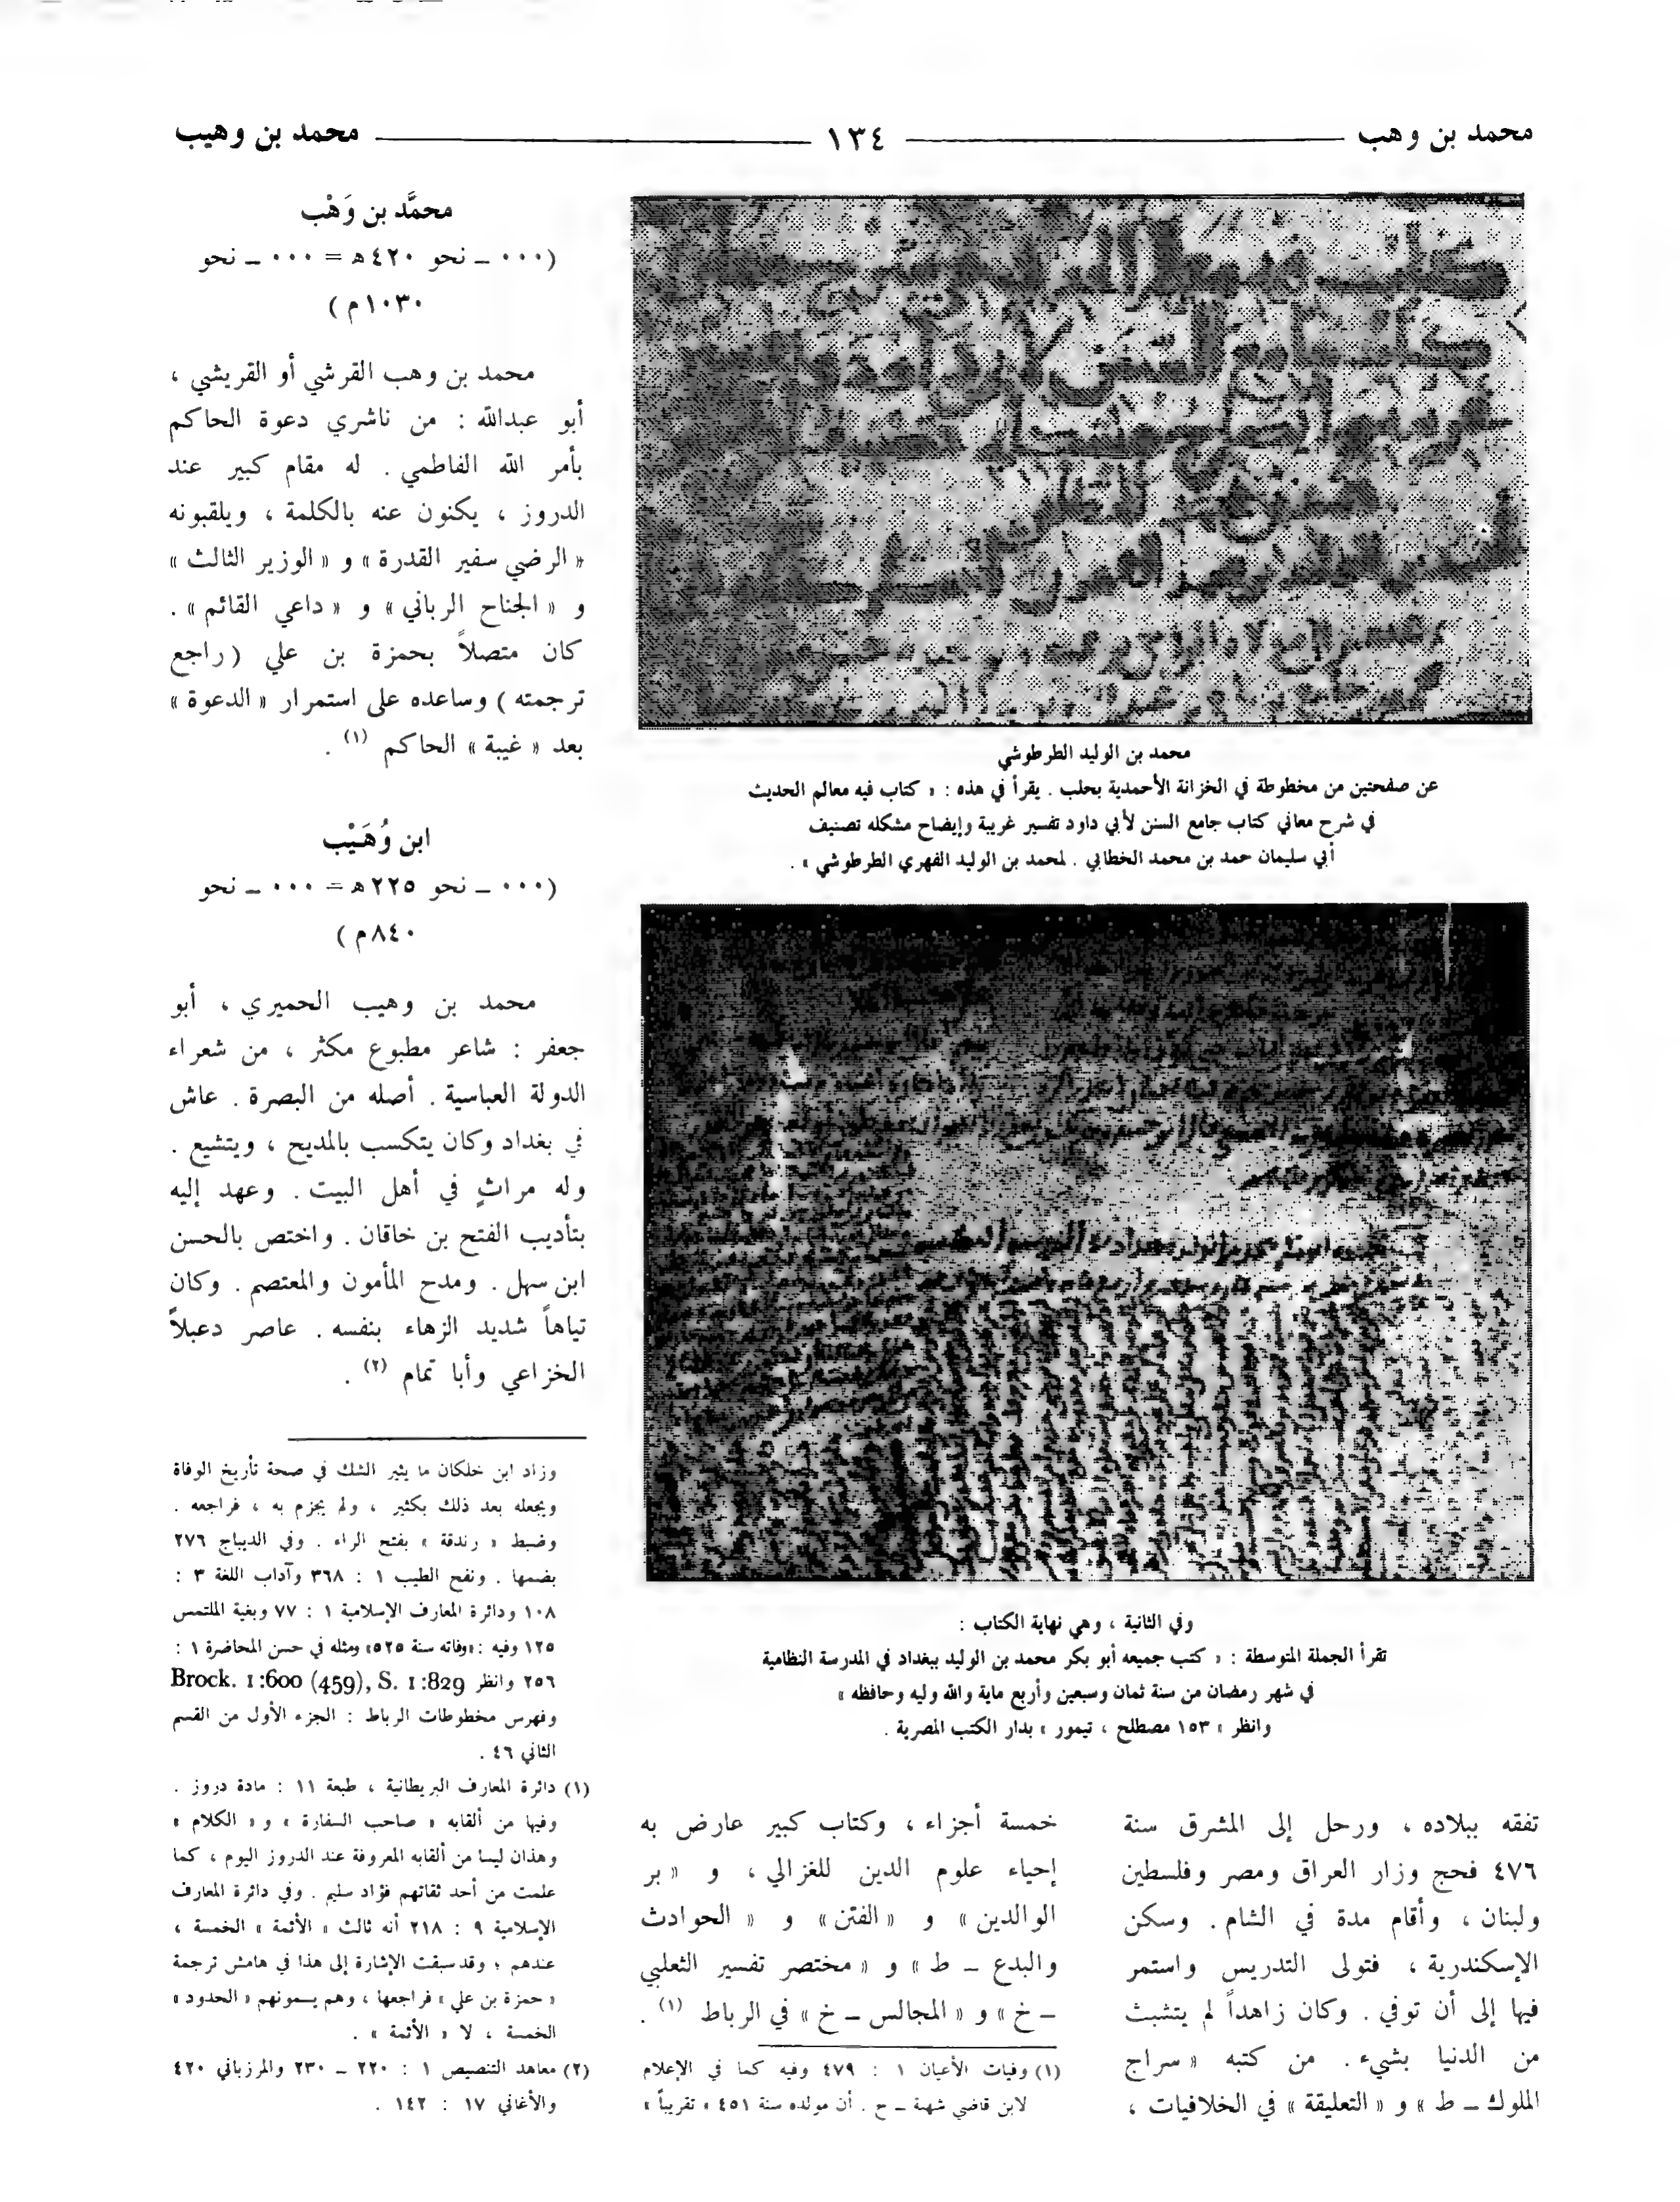 محمد بن وهب ١٣٤ محمد بن وهيب
محمد بن الوليد الطرطوشي
عن صفحتين من مخطوطة في الخزانة الأحمدية بحلب . يقرأ في هذه : « كتاب فيه معالم الحديث
في شرح معاني كتاب جامع السنن لأبي داود تفسير غريبة وإيضاح مشكله تصنيف
أبي سليمان حمد بن محمد الخطابي . لمحمد بن الوليد الفهري الطرطوشي » .
وفي الثانية ، وهي نهاية الكتاب :
تقرأ الجملة المتوسطة : « كتب جميعه أبو بكر محمد بن الوليد ببغداد في المدرسة النظامية
في شهر رمضان من سنة ثمان وسبعين وأربع ماية والله وليه وحافظه »
وانظر « ١٥٣ مصطلح ، تيمور » بدار الكتب المصرية .
تفقه ببلاده ، ورحل إلى المشرق سنة
٤٧٦ فحج وزار العراق ومصر وفلسطين
ولبنان ، وأقام مدة في الشام . وسكن
الإسكندرية ، فتولى التدريس واستمر
فيها إلى أن توفي . وكان زاهداً لم يتشبث
من الدنيا بشيء . من كتبه « سراج
الملوك ـ ط » و « التعليقة » في الخلافيات ،
خمسة أجزاء ، وكتاب كبير عارض به
إحياء علوم الدين للغزالي ، و « بر
الوالدين » و « الفتن » و « الحوادث
والبدع ـ ط » و « مختصر تفسير الثعلبي
ـ خ » و « المجالس ـ خ » في الرباط (١) .
(١) وفيات الأعيان ١ : ٤٧٩ وفيه كما في الإعلام
لابن قاضي شهبة ـ خ . أن مولده سنة ٤٥١ « تقريباً »
محمَّد بن وَهْب
(٠٠٠ ـ نحو ٤٢٠ هـ = ٠٠٠ ـ نحو
١٠٣٠م )
محمد بن وهب القرشي أو القريشي ،
أبو عبدالله : من ناشري دعوة الحاكم
بأمر الله الفاطمي . له مقام كبير عند
الدروز ، يكنون عنه بالكلمة ، ويلقبونه
« الرضي سفير القدرة » و « الوزير الثالث »
و « الجناح الرباني » و « داعي القائم » .
كان متصلاً بحمزة بن علي (راجع
ترجمته ) وساعده على استمرار « الدعوة »
بعد « غيبة » الحاكم (١) .
ابن وُهَيْب
(٠٠٠ ـ نحو ٢٢٥هـ = ٠٠٠ ـ نحو
٨٤٠م )
محمد بن وهيب الحميري ، أبو
جعفر : شاعر مطبوع مكثر ، من شعراء
الدولة العباسية . أصله من البصرة . عاش
في بغداد وكان يتكسب بالمديح ، ويتشيع .
وله مراثٍ في أهل البيت . وعهد إليه
بتأديب الفتح بن خاقان . واختص بالحسن
ابن سهل . ومدح المأمون والمعتصم . وكان
تياهاً شديد الزهاء بنفسه . عاصر دعبلاً
الخزاعي وأبا تمام (٢) .
وزاد ابن خلكان ما يثير الشك في صحة تأريخ الوفاة
ويجعله بعد ذلك بكثير ، ولم يجزم به ، فراجعه .
وضبط « رندقة » بفتح الراء . وفي الديباج ٢٧٦
بضمها . ونفح الطيب ١ : ٣٦٨ وآداب اللغة ٣ :
١٠٨ ودائرة المعارف الإسلامية ١ : ٧٧ وبغية الملتمس
١٢٥ وفيه : «وفاته سنة ٥٢٥» ومثله في حسن المحاضرة ١ :
٢٥٦ وانظر Brock. I :600 (459), S. I :829
وفهرس مخطوطات الرباط : الجزء الأول من القسم
الثاني ٤٦ .
(١) دائرة المعارف البريطانية ، طبعة ١١ : مادة دروز .
وفيها من ألقابه « صاحب السفارة » و « الكلام »
وهذان ليسا من ألقابه المعروفة عند الدروز اليوم ، كما
علمت من أحد ثقاتهم فؤاد سليم . وفي دائرة المعارف
الإسلامية ٩ : ٢١٨ أنه ثالث « الأئمة » الخمسة ،
عندهم ؛ وقد سبقت الإشارة إلى هذا في هامش ترجمة
« حمزة بن علي » فراجعها ، وهم يسمونهم « الحدود »
الخمسة ، لا « الأئمة » .
(٢) معاهد التنصيص ١ : ٢٢٠ ـ ٢٣٠ والمرزباني ٤٢٠
والأغاني ١٧ : ١٤٢ .